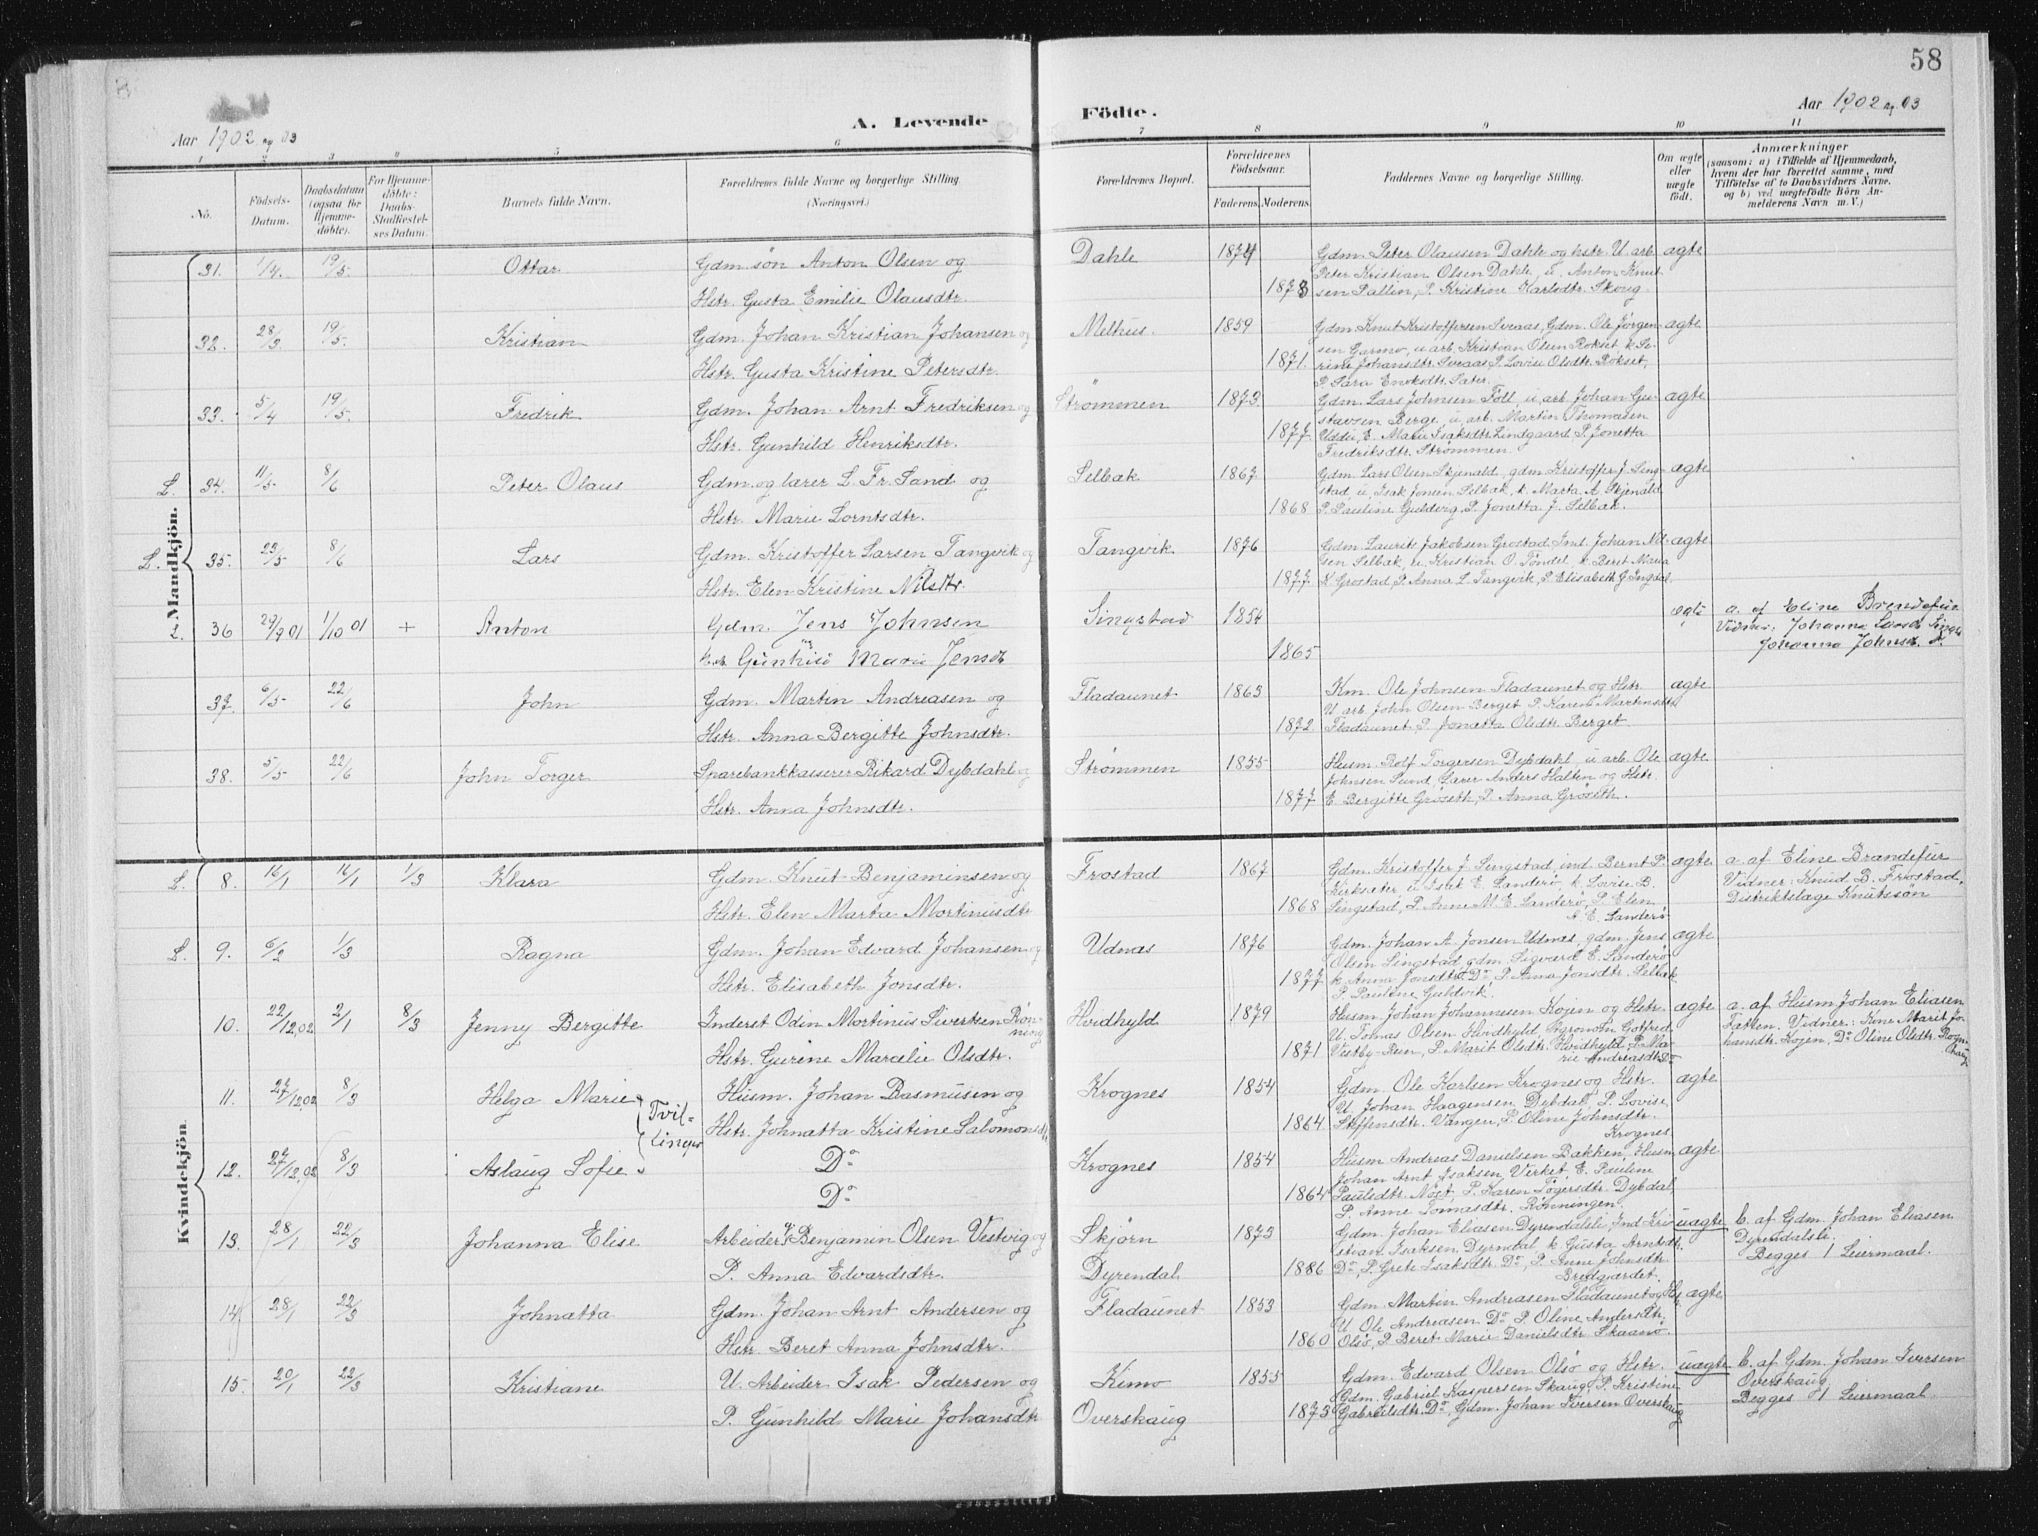 58
Aar 1902 og 03
A. Levende
Födte.
Aar 1902 og 03
1 2 3 4 5 6 7 8 9 10 11
No.
Födsels-Datum.
Daabsdatum (ogsaa for Hjemmedöbte).
For Hjemmedöbte: Daabs-Stadfæstelses Datum.
Barnets fulde Navn.
Forældrenes fulde Navne og borgerlige Stilling. (Næringsvei.)
Forældrenes Bopæl.
Forældrenes Födselsaar.
Faderens. Moderens.
Faddernes Navne og borgerlige Stilling.
Om ægte eller uægte födt.
Anmærkninger
(saasom: a) i Tilfælde af Hjemmedaab, hvem der har forrettet samme, med Tilföielse af to Daabsvidners Navne, og b) ved uægtefödte Börn Anmelderens Navn m. V.)
Mandkjön.
31. 1/4. 19/5. Ottar Gdm.søn Anton Olsen og Dahle 1874 Gdm. Peter Olausen Dahle og hstr. U. arb. ægte
Hstr. Gusta Emilie Olausdtr. 1878 Peter Kristian Olsen Dahle, u. Anton Knutsen Pallin, P. Kristine Karlsdtr. Skoug.
32. 28/3 19/5. Kristian Gdm. Johan Kristian Johansen og Melhus. 1859 Gdm. Knut Kristoffersen Sveaas, Gdm. Ole Jørgen- ægte
Hstr. Gusta Kristine Petersdtr. 1871. sen Garmo, u. arb. Kristian Olsen Rokset k. Serine Johansdtr. Sveaas, P. Lovise Olsdtr. Rokset,
P. Sara Enoksdtr. Sæter.
33. 5/4 19/5. Fredrik Gdm. Johan Arnt Fredriksen og Strømmen 1873 Gdm. Lars Johnsen Foll u. arb. Johan Gu- ægte
Hstr. Gunhild Henriksdtr. 1877 stavsen Berge, u. arb. Martin Thomasen
E. Marie Isaksdtr. Lindgaard P. Jonetta
Fredriksdtr. Strømmen
L. 34. 11/5 8/6 Peter Olaus Gdm. og lærer L. Fr. Sand og Selbak 1867 Gdm. Lars Olsen Skjenald, gdm. Kristoffer J. Sing- ægte
Hstr. Marie Lorntsdtr. 1868 stad, u. Isak Jonsen Selbak, k. Marta A. Skjenald
P. Pauline Guldvig, P. Jonetta J. Selbak.
L. 35. 23/5 8/6 Lars Gdm. Kristoffer Larsen Tangvik og Tangvik 1876 Gdm. Laurits Jakobsen Grostad, Ind. Johan Nil- ægte
Hstr. Elen Kristine Nilsdtr. 1877 sen Selbak, u. Kristian O. Tøndel k. Beret Maria
K. Grostad, P. Anna L. Tangvik, P. Elisabeth G. Ingdal
L. 36 29/9 01 1/10 01 + Anton Gdm. Jens Johnsen Singstad 1854 ægte a. af Eline Brandefur
Gunhild Marie Jensdt 1865 Vidner: Johanna Larsdt. Singst.
Johanna Johnsdt.
37. 6/5 22/6 John Gdm. Martin Andreasen og Fladaunet 1863 Km. Ole Johnsen Fladaunet og Hstr. ægte
Hstr. Anna Bergitte Johnsdtr. 1872 U arb. John Olsen Berget P. Karen Martinsdtr.
Fladaunet P. Jonetta Olsdtr. Berget
38. 5/5 22/6 John Torger Sparebankkaserer Rikard Dybdahl og Strømmen 1855 Husm. Rolf Torgersen Dybdahl, u. arb. Ole ægte
Hstr. Anna Johnsdtr. 1877 Johnsen Sund, Garver Anders Halten og Hstr.
E. Bergitte Grøseth, P. Anna Grøseth.
Kvindekjön.
L. 8. 16/1 16/1 1/3 Klara Gdm. Knut Benjaminsen og Frostad 1867 Gdm. Kristoffer J. Singstad, ind. Bernt P. ægte a. af Eline Brandefur
Hstr. Elen Marta Mortinusdtr 1868 Kirksæter u. Isak E. Sanderø, k. Lovise B. Vidner: Knud B. Frostad,
Singstad, P. Anne M. E. Sanderø, P. Elen Distriktslæge Knutssøn
E. Sanderø
L. 9. 6/2 1/3 Ragna Gdm. Johan Edvard Johansen og Udnæs 1876 Gdm. Johan A. Jonsen Udnæs, gdm. Jens ægte
Hstr. Elisabeth Jonsdtr. 1877 Olsen Singstad, gdm. Sigvard E. Sanderø
k. Anna Jonsdtr. Do, P. Anna Jonsdtr. Selbak
P. Pauline Guldvik.
10. 22/12,02 2/1 8/3 Jenny Bergitte Inderst Odin Mortinus Sivertsen Røn- Hvidhyld 1879 Husm. Johan Johannesen Kojen og Hstr. ægte a. af Husm. Johan Eliasen
ning
Hstr. Gurine Marcelie Olsdtr. 1871 U. Tomas Olsen Hvidhyld, Agronom Gotfred Fatten. Vidner: Kone Marit Jo-
Vestby-Reen, P. Marit Olsdtr. Hvidhyld, P. Ma- hansdtr. Kojen, Do Oline Olsdtr. Rogn-
rie Andreasdtr. Do haug
11. 27/12,02 8/3 Helga Marie Tvil- Husm. Johan Rasmusen og Krognes 1854 Gdm. Ole Karlsen Krognes og Hstr. ægte
linger Hstr. Johnatta Kristine Salomonsdtr 1864 U. Johan Haagensen Dybdal, P. Lovise
Steffensdtr. Vangen, P. Oline Johnsdtr.
Krognes
12. 27/12,02 8/3 Aslaug Sofie Do Krognes 1854 Husm. Andreas Danielsen Bakken, Husm. ægte
Do 1864 Johan Arnt Isaksen Virket, E. Pauline
Paulsdtr. Nøst, P. Karen Togersdtr. Dybdal,
P. Anne Tomasdtr. Rønningen.
13. 28/1 22/3 Johanna Elise Arbeider Benjamin Olsen Vestvig og Skjørn 1873 Gdm. Johan Eliasen Dyrendalsli, Ind. Kri- uægte b. af Gdm. Johan Eliasen
P. Anna Edvardsdtr. Dyrendal 1886 stian Isaksen Dyrndal k Gusta Arntsdtr. Dyrendalsli.
Do, P. Grete Isaksdtr. Do, P. Anne Johnsdtr. Begges 1 Leiermaal.
Bredgardet.
14 28/1 22/3 Johnatta Gdm. Johan Arnt Andersen og Fladaunet 1853 Gdm. Martin Andreasen Fladaunet og H. ægte
Hstr. Beret Anna Johnsdtr. 1860 U. Ole Andreasen Do P. Oline Andersdtr.
Olsø, P. Beret Marie Danielsdtr. Skaanø.
15. 20/1 22/3 Kristiane U. Arbeider Isak Pedersen og Kimo 1855 Gdm. Edvard Olsen Olsø og Hstr. uægte b. af Gdm. Johan Iversen
P. Gunhild Marie Johansdtr Overskaug 1873 Gdm. Gabriel Kaspersen Skaug, P. Kristine Overskaug
Gabrielsdtr. Do, Gdm. Johan Iversen Overskaug Begges 1 Leiermaal.